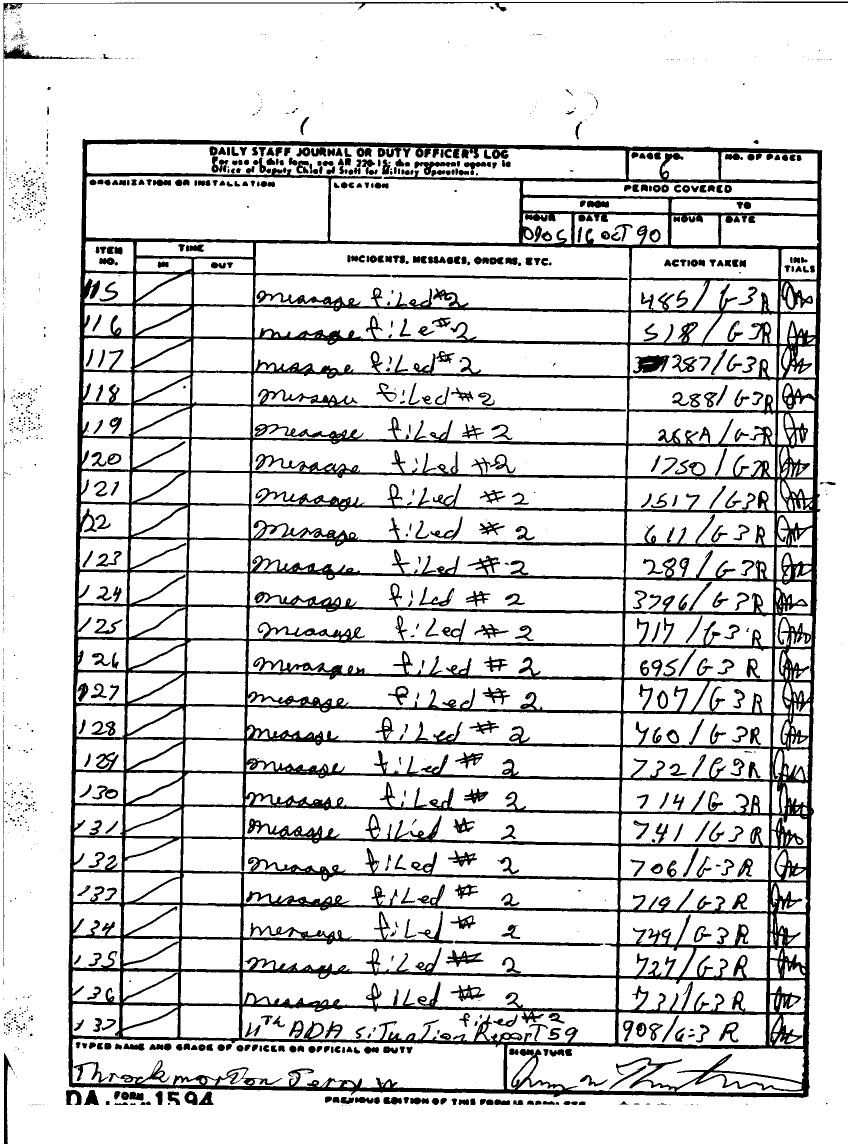 DAILY STAFF JOURNAL OR DUTY OFFICER'S LOG
For use of this form, see AR 220-15; the proponent agency is
Office of Deputy Chief of Staff for Military Operations.
PAGE NO.
6
NO. OF PAGES
ORGANIZATION OR INSTALLATION
LOCATION
PERIOD COVERED
FROM
TO
HOUR
DATE
HOUR
DATE
16 OCT 90
ITEM NO.
TIME
IN
OUT
INCIDENTS, MESSAGES, ORDERS, ETC.
ACTION TAKEN
INITIALS
115 message filed #2 485/G3R
116 message file #2 518/G3R
117 message filed #2 1287/G3R
118 message filed #2 288/G3R
119 message filed #2 268A/G3R
120 message filed #2 1750/G3R
121 message filed #2 1517/G3R
122 message filed #2 611/G3R
123 message filed #2 289/G3R
124 message filed #2 3796/G3R
125 message filed #2 717/G3R
126 message filed #2 695/G3R
127 message filed #2 707/G3R
128 message filed #2 760/G3R
129 message filed #2 732/G3R
130 message filed #2 714/G3R
131 message filed #2 741/G3R
132 message filed #2 706/G-3R
133 message filed #2 719/G3R
134 message filed #2 749/G-3R
135 message filed #2 727/G3R
136 message filed #2 731/G3R
137 11th ADA situation Report 59 filed #2 908/G-3R
TYPED NAME AND GRADE OF OFFICER OR OFFICIAL ON DUTY
Throckmorton Jerry W
SIGNATURE
DA FORM 1594
PREVIOUS EDITION OF THIS FORM IS OBSOLETE